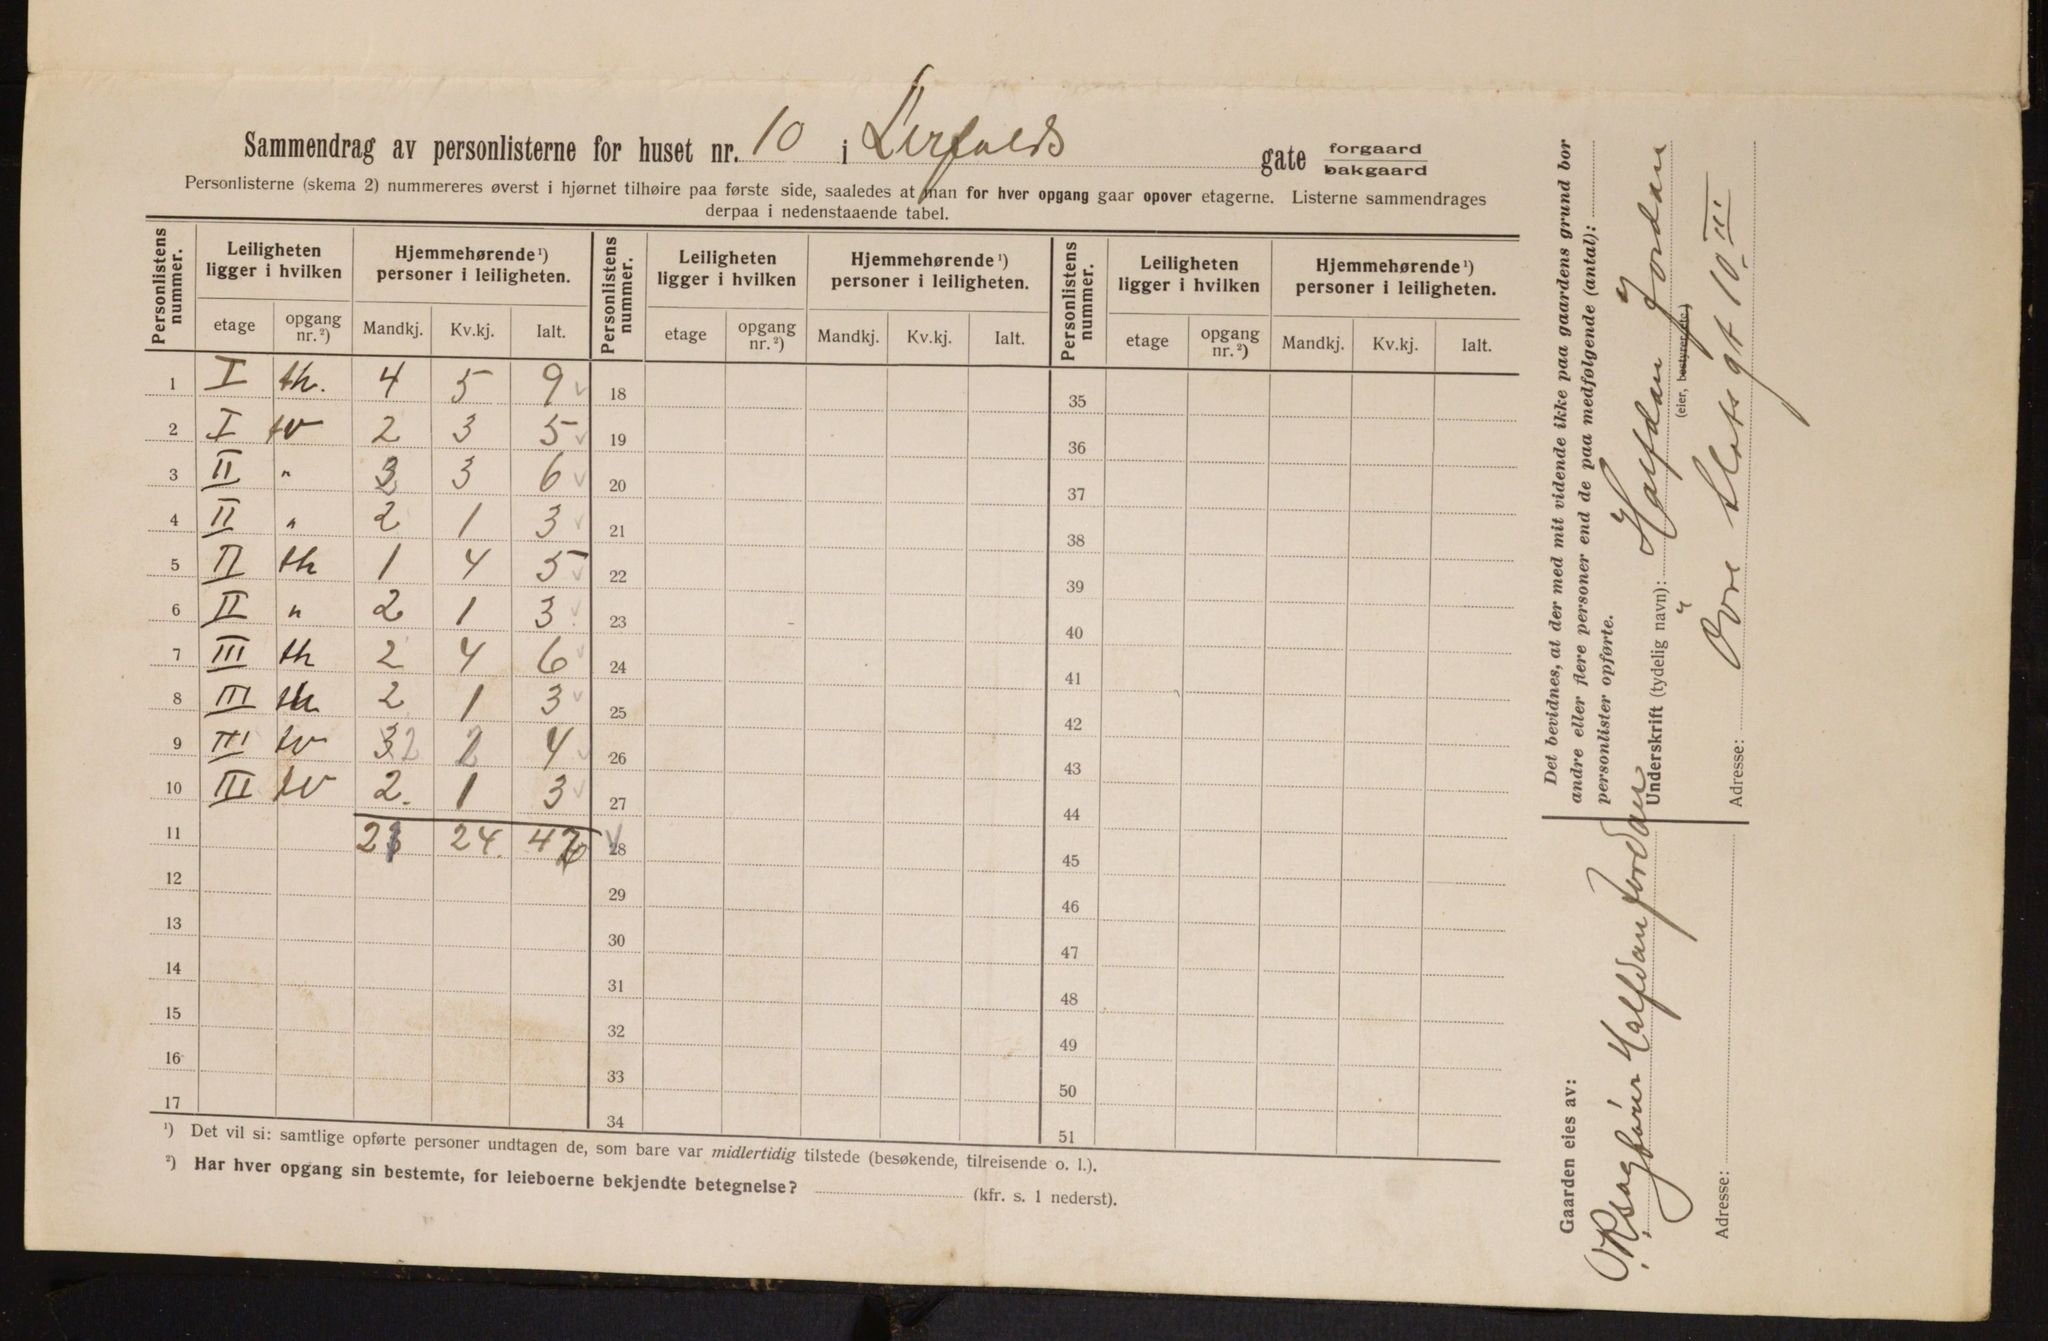 Sammendrag av personlisterne for huset nr. 10 i Lerfalds gate forgaard bakgaard
Personlisterne (skema 2) nummereres øverst i hjørnet tilhøire paa første side, saaledes at man for hver opgang gaar opover etagerne. Listerne sammendrages
derpaa i nedenstaaende tabel.
Personlistens nummer. Leiligheten ligger i hvilken Hjemmehørende ¹) personer i leiligheten. Personlistens nummer. Leiligheten ligger i hvilken Hjemmehørende ¹) personer i leiligheten. Personlistens nummer. Leiligheten ligger i hvilken Hjemmehørende ¹) personer i leiligheten.
etage opgang nr. ²) Mandkj. Kv.kj. Ialt. etage opgang nr. ²) Mandkj. Kv.kj. Ialt. etage opgang nr. ²) Mandkj. Kv.kj. Ialt.
1 I th. 4 5 9 18 35
2 I tv 2 3 5 19 36
3 II " 3 3 6 20 37
4 II " 2 1 3 21 38
5 II th 1 4 5 22 39
6 II " 2 1 3 23 40
7 III th 2 4 6 24 41
8 III th 2 1 3 25 42
9 III tv 3 2 2 4 26 43
10 III tv 2. 1 3 27 44
11 24. 28 45
12 29 46
13 30 47
14 31 48
15 32 49
16 33 50
17 34 51
¹) Det vil si: samtlige opførte personer undtagen de, som bare var midlertidig tilstede (besøkende, tilreisende o. l.).
²) Har hver opgang sin bestemte, for leieboerne bekjendte betegnelse? (kfr. s. 1 nederst).
Det bevidnes, at der med mit vidende ikke paa gaardens grund bor
andre eller flere personer end de paa medfølgende (antal):
personlister opførte.
Underskrift (tydelig navn): Halfdan Jordan
(eier, bestyrer etc.)
Adresse: Övre Slotsgt 10 III
Gaarden eies av:
O.R. sagfører Halfdan Jordan
Adresse: